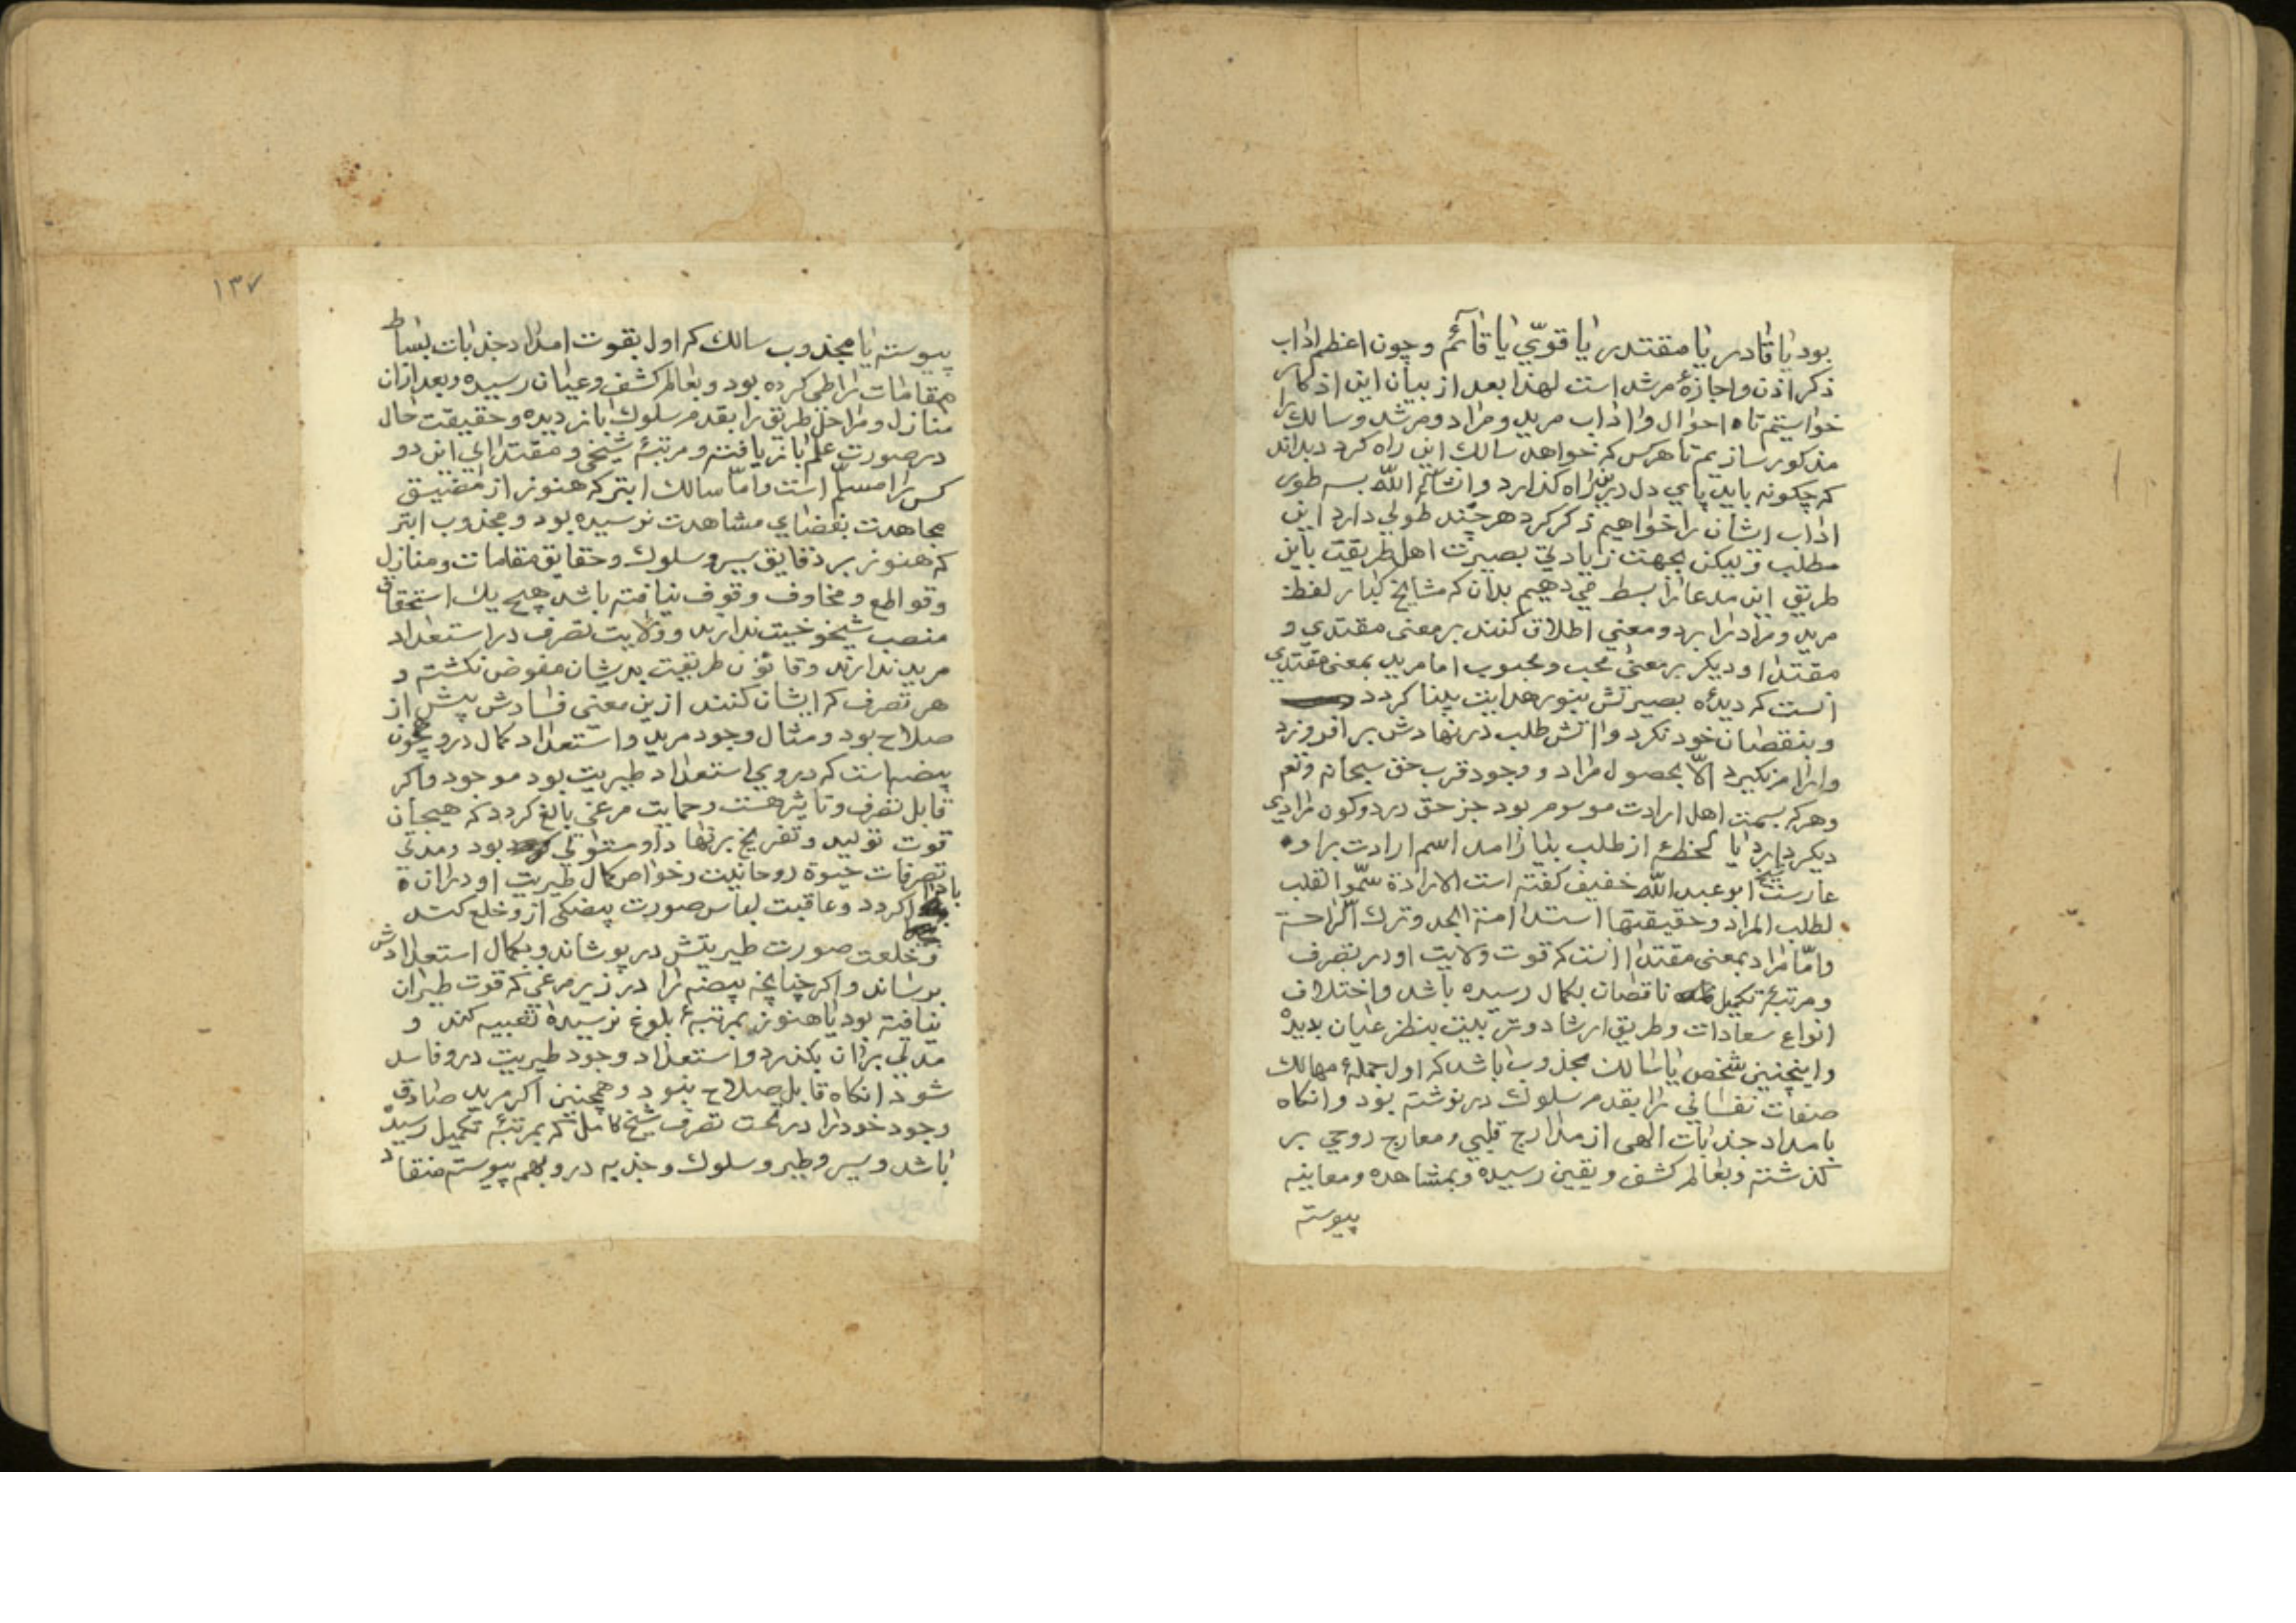 بود یا قادر یا مقتدر یا قویّ یا قآئم و چون اعظم اداب
ذکر اذن و اجازۀ مرشد است لهذا بعد از بیان این اذکار
خواستیم تا احوال و اداب مرید و مراد و مرشد و سالک را
مذکور سازیم تا هرکس که خواهد سالک این راه کردد بداند
که چکونه باید پای دل درین راه کذارد و انشآء اللّه بسه طور
اداب ایشان را خواهیم ذکر کرد هرچند طولی دارد این
مطلب و لیکن بجهت زیادتی بصیرت اهل طریقت باین
طریق این مدعا را بسط می دهیم بدان که مشایخ کبار لفظ
مرید و مراد را بر دو معنی اطلاق کنند بر معنی مقتدی و
مقتدا و دیکر بر معنی محب و محبوب اما مرید بمعنی مقتدی
انست که دیدۀ بصیرتش بنور هدایت بینا کردد
و بنقصان خود نکرد و اتش طلب در نهادش بر افروزد
و ارام نکیرد الّا بحصول مراد و وجود قرب حق سبحانه و تع
و هرکه بسمت اهل ارادت موسوم بود جز حق در دو کون مرادی
دیکر دارد یا لحظۀ از طلب بیارامد اسم ارادت بر او
عاریت شیخ ابو عبد اللّه خفیف کفته است الارادة سموّ القلب
لطلب المراد و حقیقتها استدامة الجد و ترک الراحة
و امّا مراد بمعنی مقتدا انست که قوت ولایت او در تصرف
و مرتبۀ تکمیل ناقصان بکمال رسیده باشد و اختلاف
انواع سعادات و طریق ارشاد و تربیت بنظر عیان بدیدۀ
و اینچنین شخص یا سالک مجذوب باشد که اول جملۀ مهالک
صفات نفسانی را بقدم سلوک در نوشته بود و انکاه
بامداد جذبات الهی از مدارج قلبی و معارج روحی بر
کذشته و بعالم کشف و یقین رسیده و بمشاهده و معاینه
پیوسته
١٣٧
پیوسته یا مجذوب سالک که اول بقوت امداد جذبات بساط
مقامات را طی کرده بود و بعالم کشف و عیان رسیده و بعد ازان
منازل و مراحل طریق را بقدم سلوک باز دیده و حقیقت حال
در صورت علم باز یافته و مرتبۀ شیخی و مقتدای این دو
کس را مسلّم است و امّا سالک ابتر که هنوز از مضیق
مجاهدت بفضای مشاهدت نرسیده بود و مجذوب ابتر
که هنوز بر دقایق سیر و سلوک و حقایق مقامات و منازل
و قواطع و مخاوف وقوف نیافته باشد هیچ یک استحقاق
منصب شیخوخیت ندارند و ولایت تصرف در استعداد
مرید ندارند و قانون طریقت بدیشان مفوض نکشته و
هر تصرف که ایشان کنند ازین معنی فسادش پیش از
صلاح بود و مثال وجود مرید و استعداد کمال درو همچون
بیضه است که در وی استعداد طیریت بود موجود و اکر
قابل تصرف و تاثیر هست و حمایت مرغی بالغ کردد که هیجان
قوت تولید و تفریخ بر نهاد او مستولی بود و مدتی
تصرفات حیوة روحانیت و خواص کمال طیریت او دران
با خدا کردد و عاقبت لباس صورت بیضکی ازو خلع کند
و خلعت صورت طیریتش در پوشاند و بکمال استعدادش
برساند و اکر چنانچه بیضه را در زیر مرغی که قوت طیران
نیافته بود یا هنوز بمرتبۀ بلوغ نرسیده تعبیه کند و
مدتی بر ان بکذرد و استعداد وجود طیریت درو فاسد
شود انکاه قابل صلاح نبود و همچنین اکر مرید صادق
وجود خود را در تحت تصرف شیخ کامل که بمرتبۀ تکمیل رسیدۀ
باشد و سیر و طیر و سلوک و جذبه درو بهم پیوسته منقاد